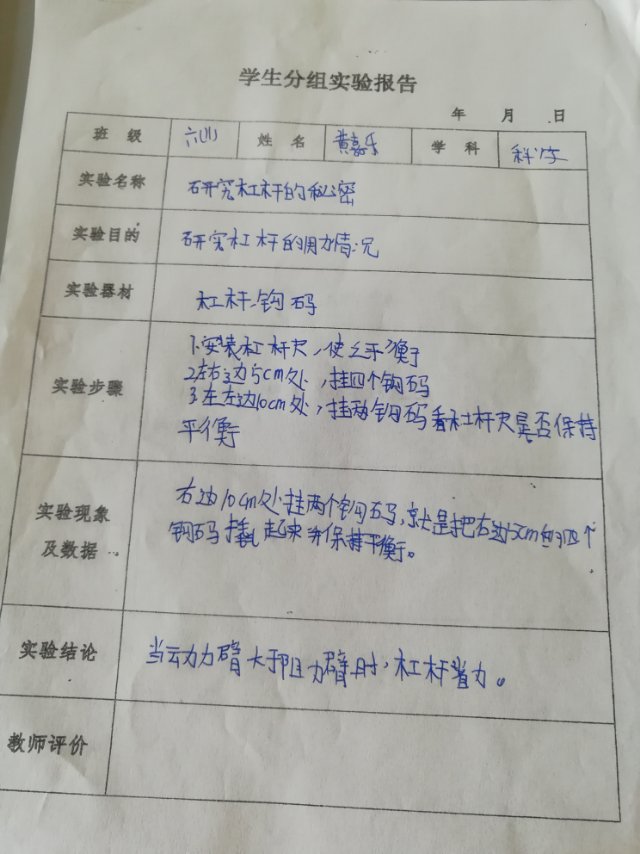 学生分组实验报告
年 月 日
班 级 六(1) 姓 名 黄嘉乐 学 科 科学
实验名称 研究杠杆的秘密
实验目的 研究杠杆的用力情况
实验器材 杠杆、钩码
实验步骤
1.安装杠杆尺,使之平衡
2.右边5cm处,挂四个钩码
3.在左边10cm处,挂两钩码看杠杆尺是否保持
平衡
实验现象
及数据
右边10cm处挂两个钩码,就是把右边5cm的四个
钩码撬起来并保持平衡。
实验结论 当动力臂大于阻力臂时,杠杆省力。
教师评价